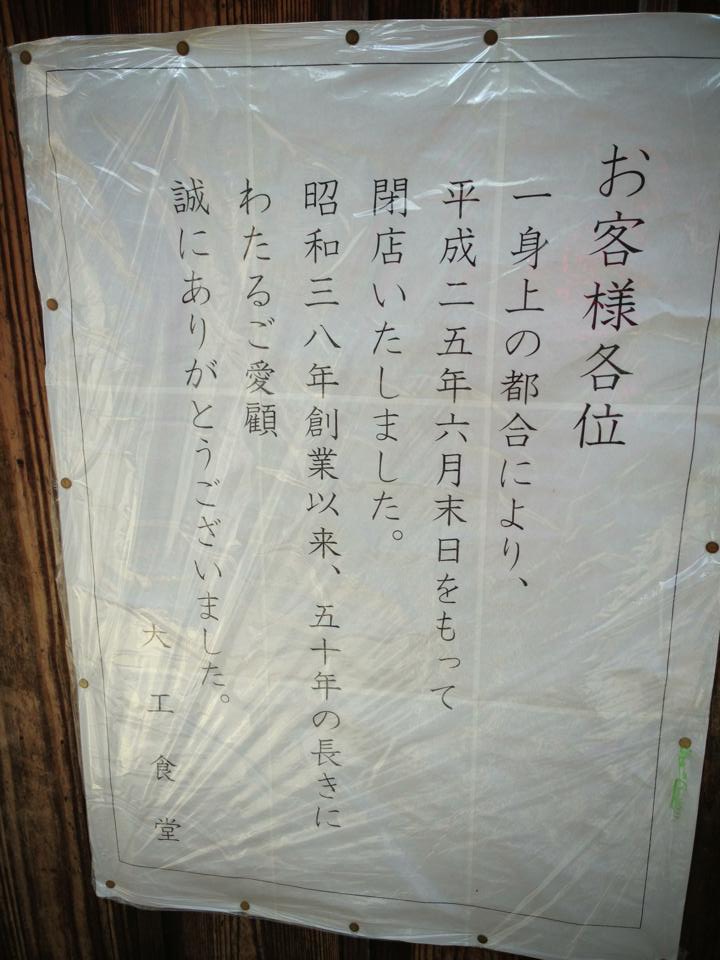 お客様各位
一身上の都合により、
平成二五年六月末日をもって
閉店いたしました。
昭和三八年創業以来、五十年の長きに
わたるご愛顧
誠にありがとうございました。
大工食堂